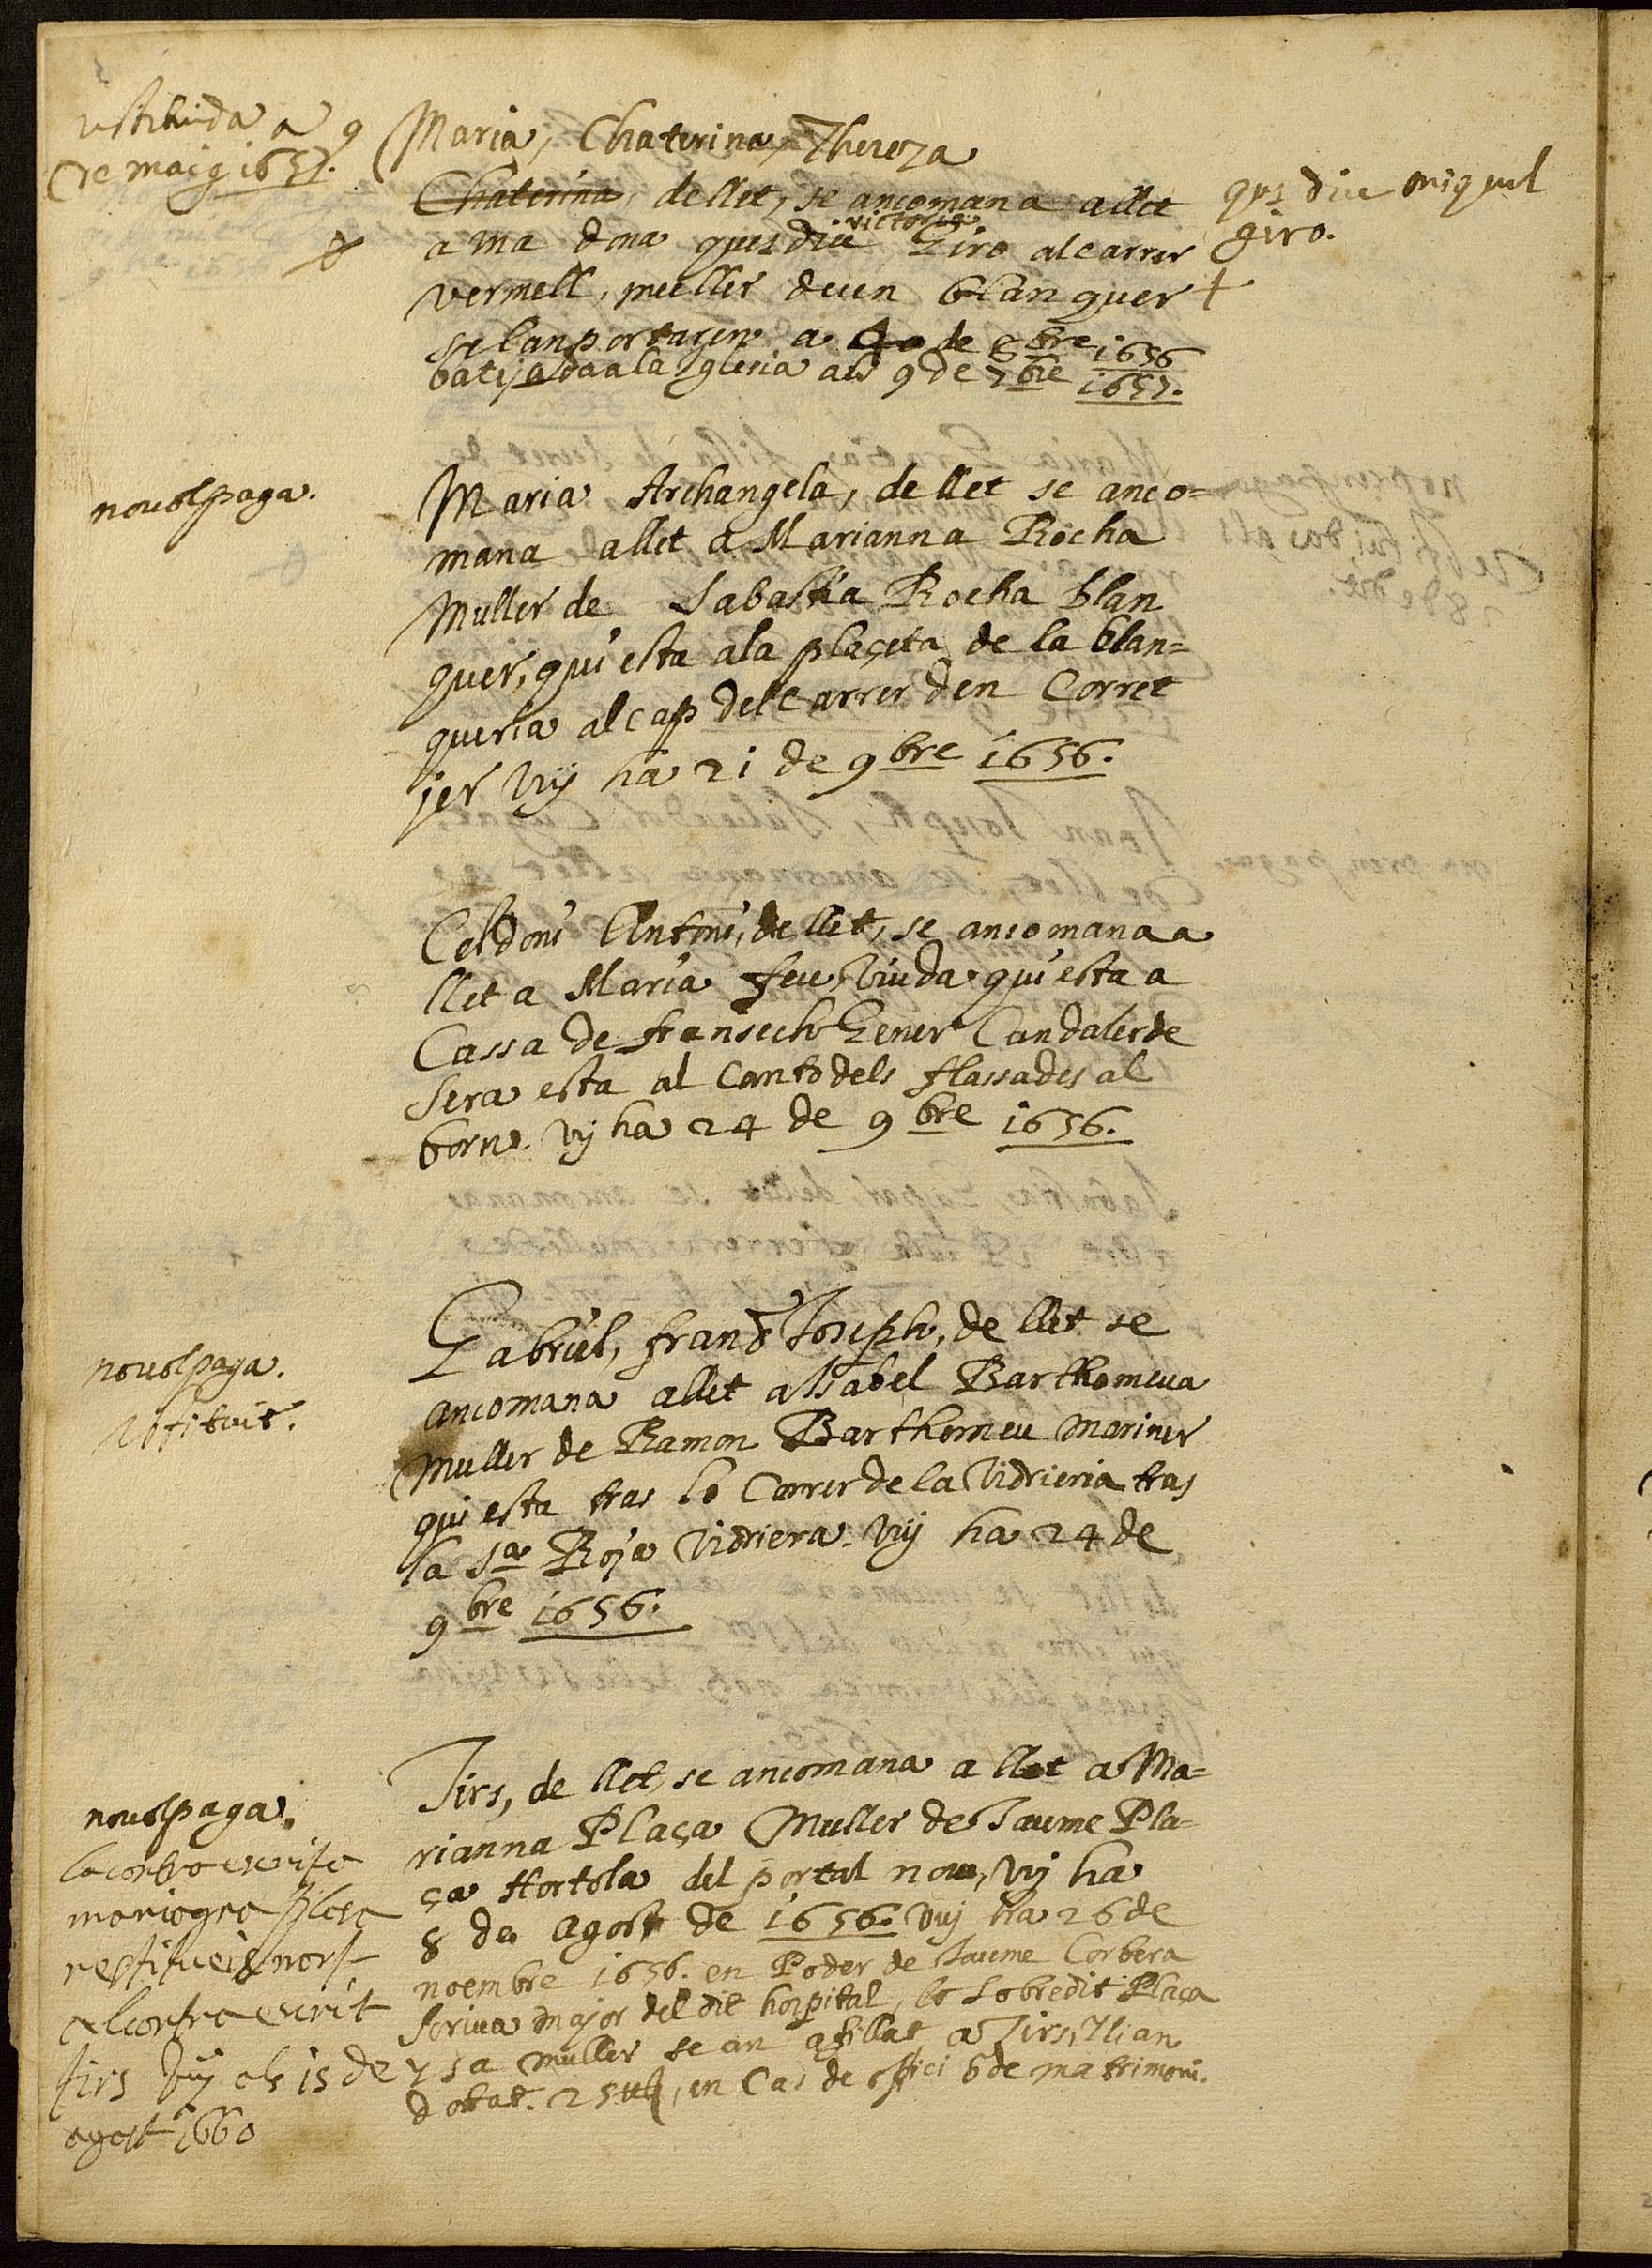 restituida a 9
de maig 1657.
Maria, Chaterina, Thereza
Chaterina, de llet, se ancomana allet
a ma dona ques diu victoria Giro al carrer
vermell, muller deun blanquer +
se lanportaren a 40 de 8bre 1656
batejada a la Iglesia als 9 de 7bre 1657.
qus diu miquel
giro.
nouolpaga.
Maria Archangela, de llet se anco=
mana allet a Marianna Rocha
Muller de Sabastia Rocha blan
quer, qui esta ala plaçeta de la blan=
queria al cap del Carrer den Corret
jer Vij ha 21 de 9bre 1656.
Celdoni Antoni, de llet, se ancomana a
llet a Maria feu, Viuda qui esta a
Cassa de fransech Gener Candaler de
Sera esta al Canto dels flassades al
born. Vij ha 24 de 9bre 1656.
nouolpaga.
restituit.
Gabriel, fransch Joseph, de llet se
ancomana allet a Isabel Barthomeua
Muller de Ramon Barthomeu mariner
qui esta tras lo Carrer de la Vidrieria tras
la Sra Roja Vidriera. Vij ha 24 de
9bre 1656.
nouolpaga.
la contra escrita
mariagna plasa
restitueix nort
al contra escrit
tirs Vuy als 15 de
agost 1660
Tirs, de llet, se ancomana a llet a Ma=
rianna Plaça Muller de Jaume Pla=
ça Hortola del portal nou, Vij ha
8 de Agost de 1656. Vuj ha 26 de
noembre 1656. en Poder de Jaume Corbera
scriua major del dit hospital, lo sobredit Plaça
y sa muller se an afillat a Tirs, Ilian
dottat. 25 ₶, en Cas de offici o de matrimoni.